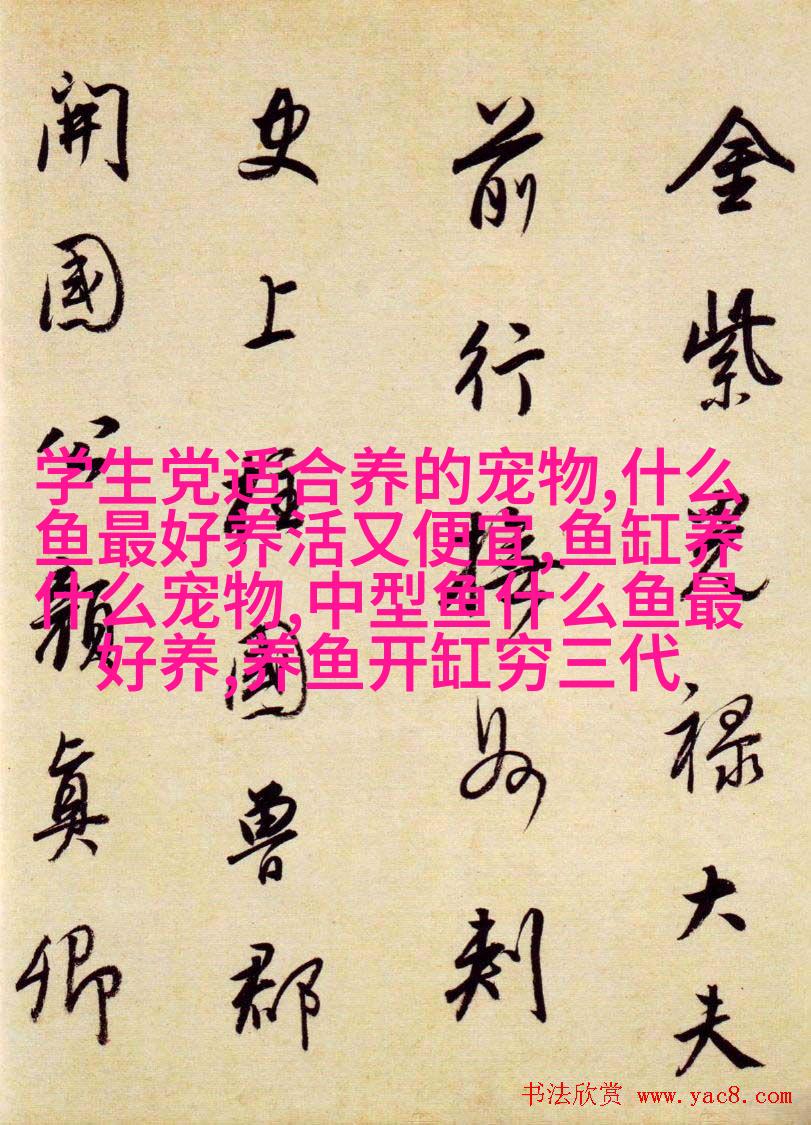 金紫光禄大夫
前行撫州刺
史上柱國魯郡
開國公顏真卿
学生党适合养的宠物,什么
鱼最好养活又便宜,鱼缸养
什么宠物,中型鱼什么鱼最
好养,养鱼开缸穷三代
书法欣赏 www.yac8.com